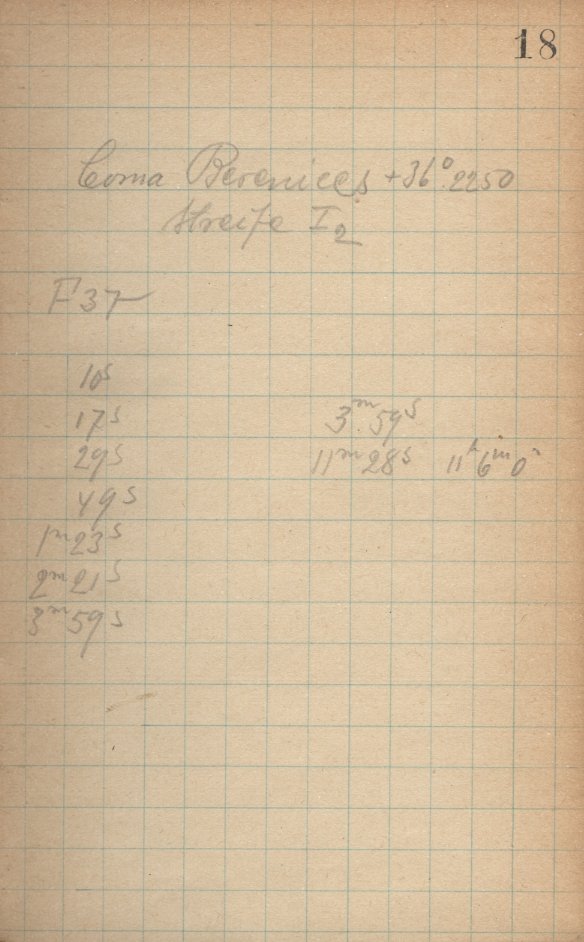 18
Coma Berenices +36° 2250
Streife I₂
F 37
10ˢ
17ˢ 3ᵐ 59ˢ
29ˢ 11ᵐ 28ˢ 11ʰ 6ᵐ 0ˢ
49ˢ
1ᵐ 23ˢ
2ᵐ 21ˢ
3ᵐ 59ˢ